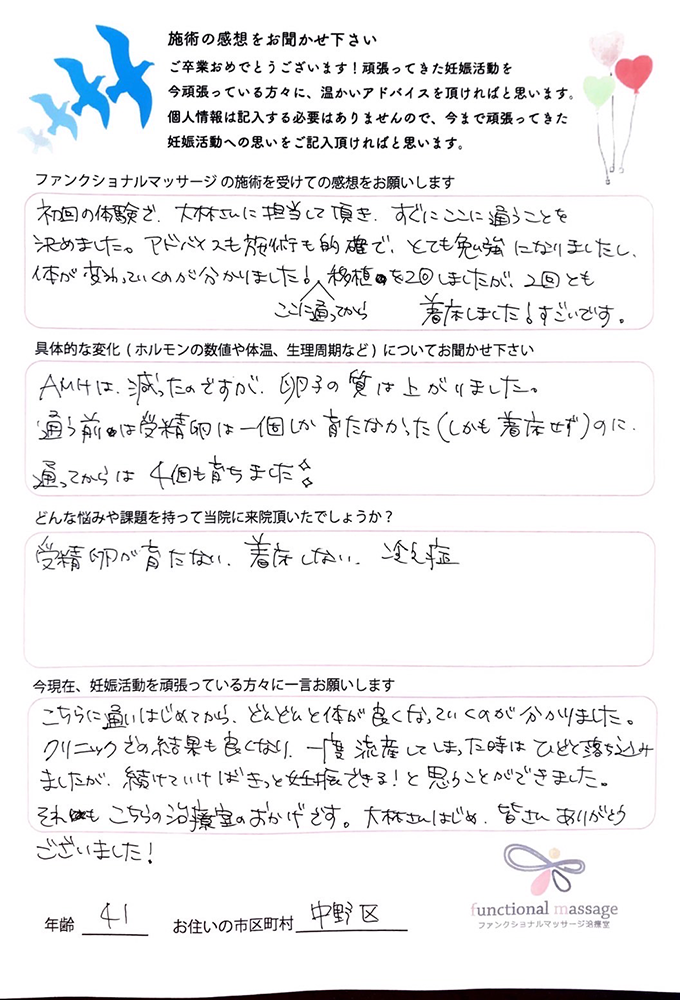 施術の感想をお聞かせ下さい
ご卒業おめでとうございます！頑張ってきた妊娠活動を
今頑張っている方々に、温かいアドバイスを頂ければと思います。
個人情報は記入する必要はありませんので、今まで頑張ってきた
妊娠活動への思いをご記入頂ければと思います。
ファンクショナルマッサージの施術を受けての感想をお願いします
初回の体験で、大林さんに担当して頂き、すぐにここに通うことを
決めました。アドバイスも施術も的確で、とても勉強になりましたし、
体が変わっていくのが分かりました！移植を2回しましたが、2回とも
ここに通ってから 着床しました！すごいです。
具体的な変化（ホルモンの数値や体温、生理周期など）についてお聞かせ下さい
AMHは、減ったのですが、卵子の質は上がりました。
通う前は受精卵は一個しか育たなかった（しかも着床せず）のに、
通ってからは4個も育ちました
どんな悩みや課題を持って当院に来院頂いたでしょうか？
受精卵が育たない、着床しない、冷え症
今現在、妊娠活動を頑張っている方々に一言お願いします
こちらに通いはじめてから、どんどんと体が良くなっていくのが分かりました。
クリニックでの結果も良くなり、一度流産してしまった時はひどく落ち込み
ましたが、続けていけばきっと妊娠できる！と思うことができました。
それもこちらの治療室のおかげです。大林さんはじめ、皆さんありがとう
ございました！
年齢 41 お住いの市区町村 中野区
functional massage
ファンクショナルマッサージ治療室